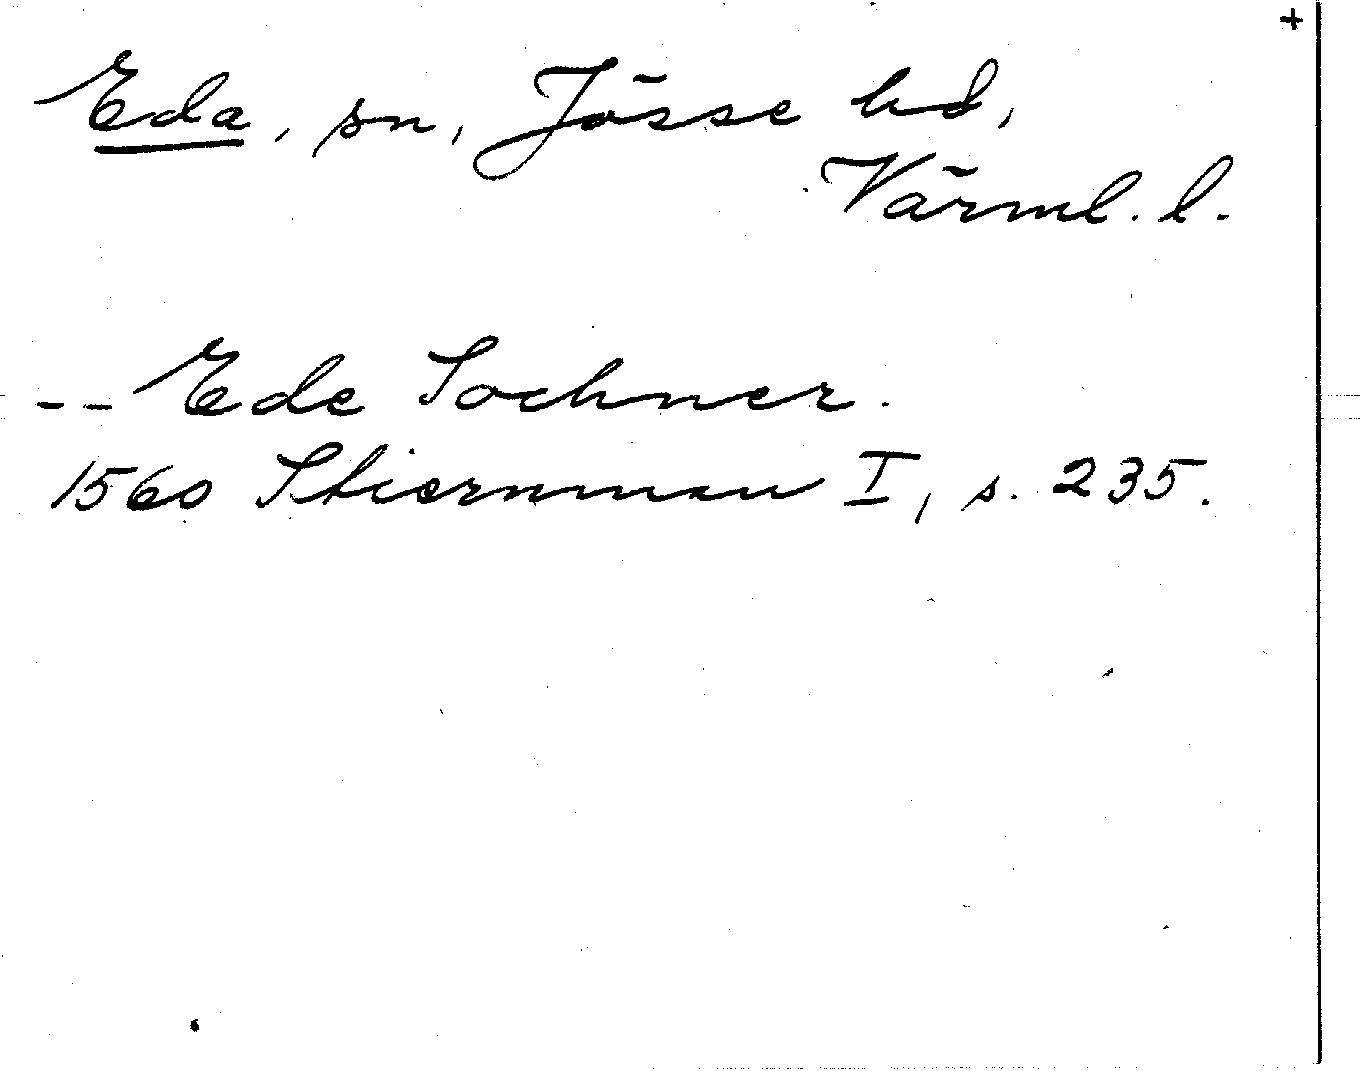 +
Eda, sn, Jösse hd,
Värml. l.
-- Ede Sochner.
1560 Stiernman I, s. 235.